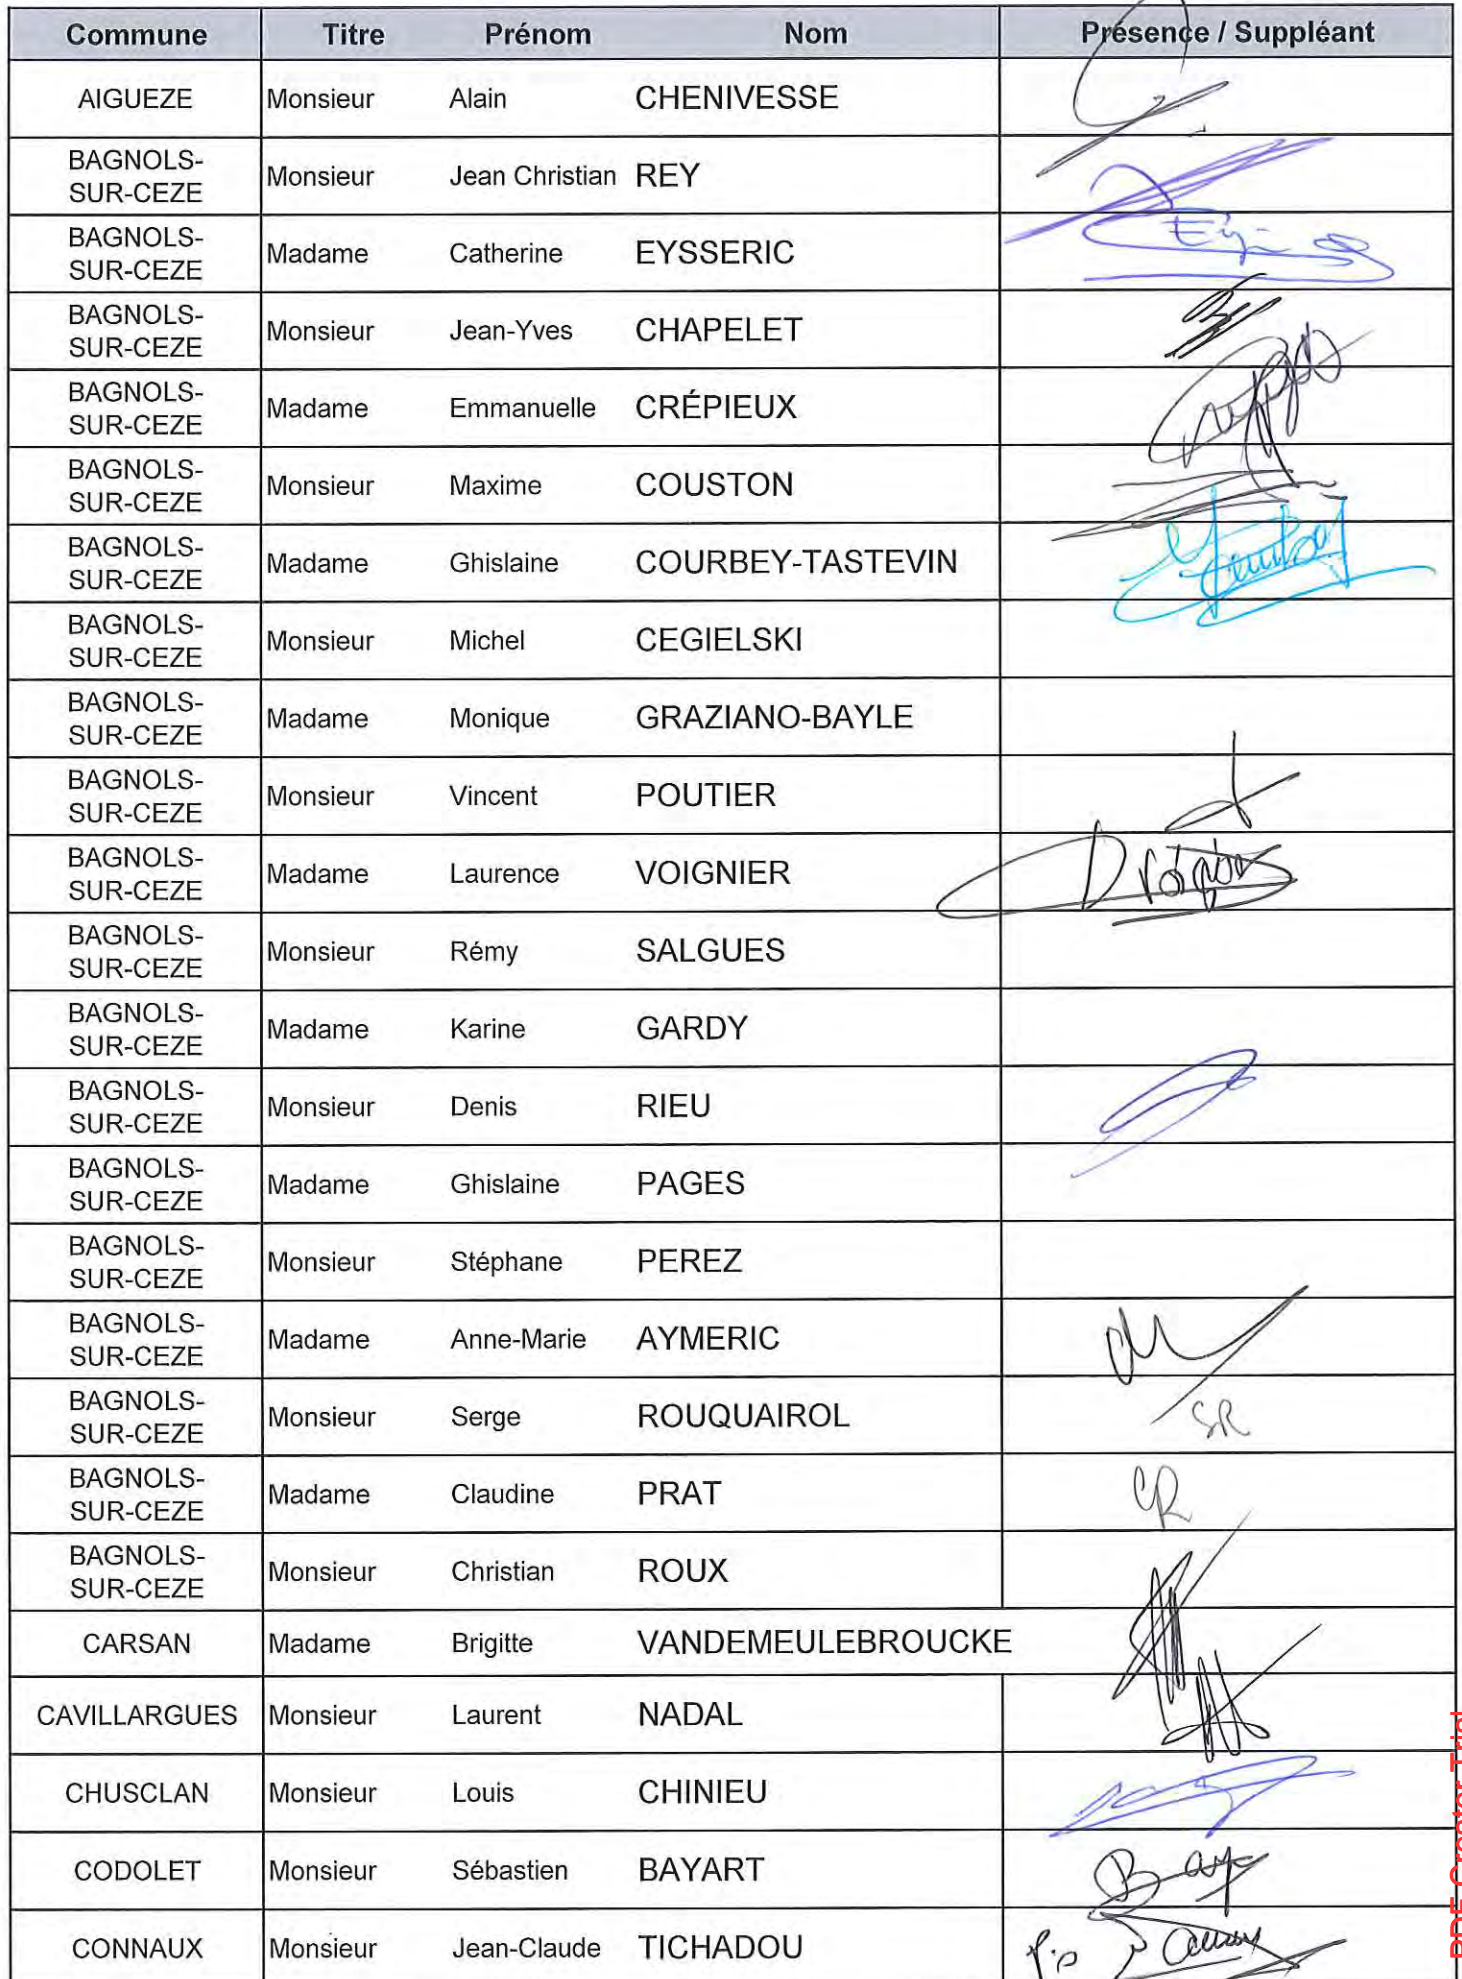 Commune Titre Prénom Nom Présence / Suppléant
AIGUEZE Monsieur Alain CHENIVESSE
BAGNOLS-
SUR-CEZE Monsieur Jean Christian REY
BAGNOLS-
SUR-CEZE Madame Catherine EYSSERIC
BAGNOLS-
SUR-CEZE Monsieur Jean-Yves CHAPELET
BAGNOLS-
SUR-CEZE Madame Emmanuelle CRÉPIEUX
BAGNOLS-
SUR-CEZE Monsieur Maxime COUSTON
BAGNOLS-
SUR-CEZE Madame Ghislaine COURBEY-TASTEVIN
BAGNOLS-
SUR-CEZE Monsieur Michel CEGIELSKI
BAGNOLS-
SUR-CEZE Madame Monique GRAZIANO-BAYLE
BAGNOLS-
SUR-CEZE Monsieur Vincent POUTIER
BAGNOLS-
SUR-CEZE Madame Laurence VOIGNIER
BAGNOLS-
SUR-CEZE Monsieur Rémy SALGUES
BAGNOLS-
SUR-CEZE Madame Karine GARDY
BAGNOLS-
SUR-CEZE Monsieur Denis RIEU
BAGNOLS-
SUR-CEZE Madame Ghislaine PAGES
BAGNOLS-
SUR-CEZE Monsieur Stéphane PEREZ
BAGNOLS-
SUR-CEZE Madame Anne-Marie AYMERIC
BAGNOLS-
SUR-CEZE Monsieur Serge ROUQUAIROL SR
BAGNOLS-
SUR-CEZE Madame Claudine PRAT
BAGNOLS-
SUR-CEZE Monsieur Christian ROUX
CARSAN Madame Brigitte VANDEMEULEBROUCKE
CAVILLARGUES Monsieur Laurent NADAL
CHUSCLAN Monsieur Louis CHINIEU
CODOLET Monsieur Sébastien BAYART
CONNAUX Monsieur Jean-Claude TICHADOU
PDF Creator Trial